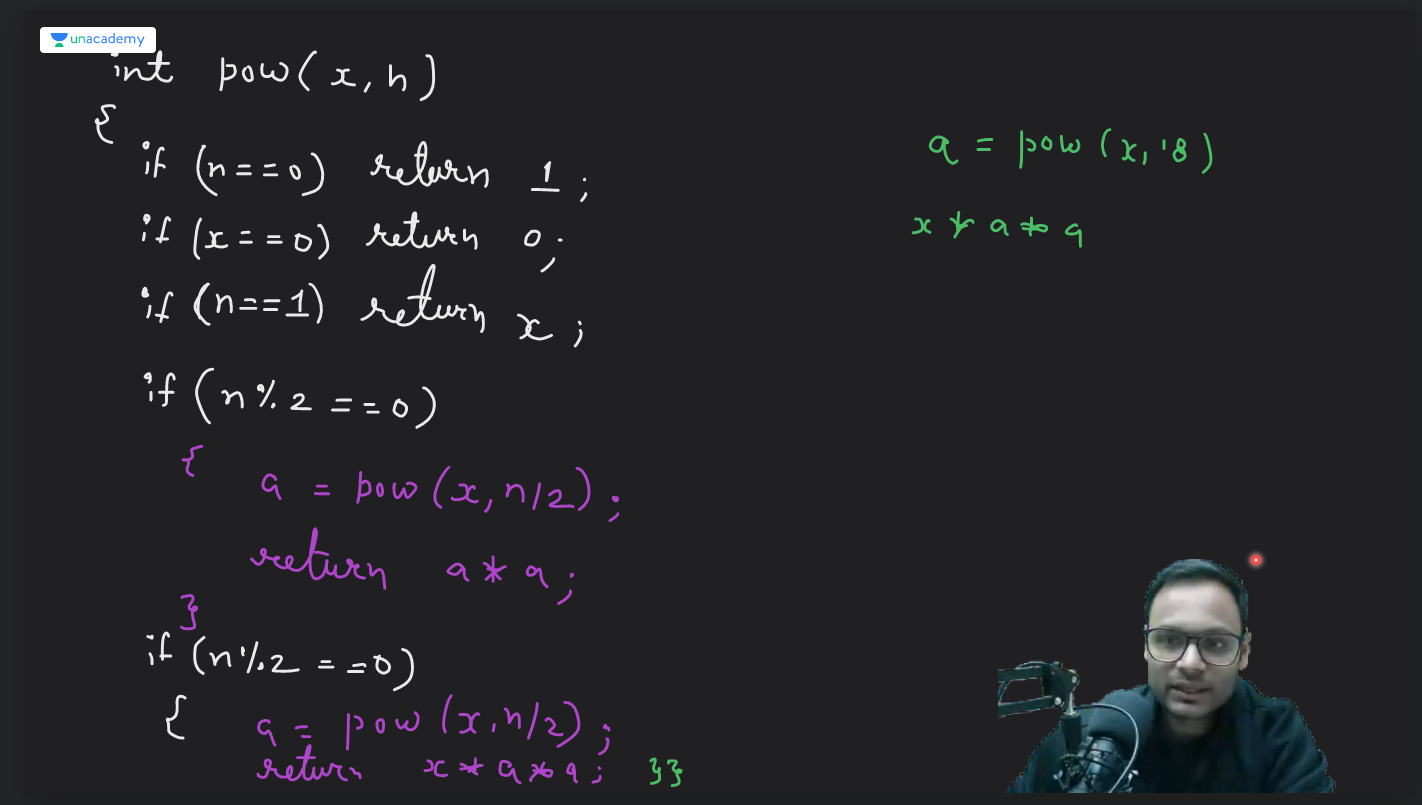 unacademy
int pow(x, n)
{
if (n==0) return 1;
if (x==0) return 0;
if (n==1) return x;
if (n%2==0)
{ a = pow(x, n/2);
return a*a;
}
if (n%2==0)
{ a = pow(x, n/2);
return x*a*a; }}
a = pow(x, '8)
x*a*a